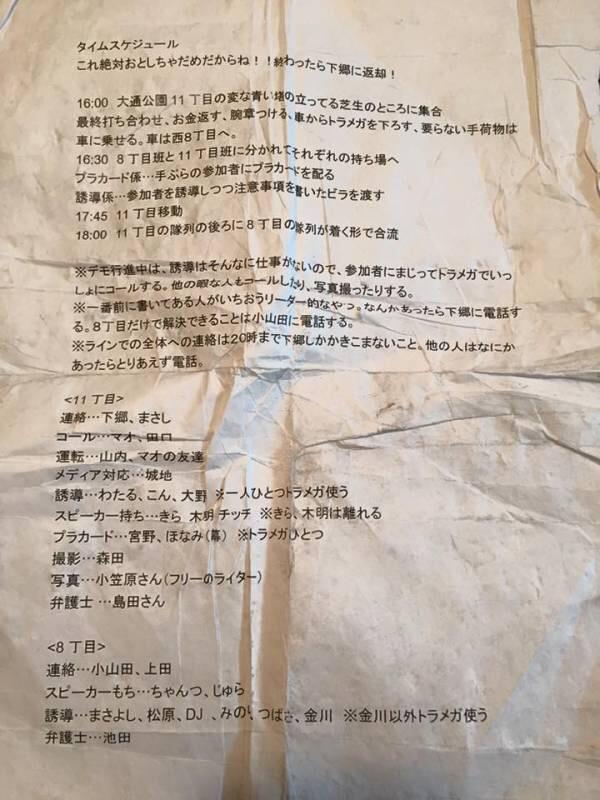 タイムスケジュール
これ絶対おとしちゃだめだからね！！終わったら下郷に返却！
16:00 大通公園11丁目の変な青い塔の立ってる芝生のところに集合
最終打ち合わせ、お金返す、腕章つける、車からトラメガを下ろす、要らない手荷物は
車に乗せる。車は西8丁目へ。
16:30 8丁目班と11丁目班に分かれてそれぞれの持ち場へ
プラカード係…手ぶらの参加者にプラカードを配る
誘導係…参加者を誘導しつつ注意事項を書いたビラを渡す
17:45 11丁目移動
18:00 11丁目の隊列の後ろに8丁目の隊列が着く形で合流
※デモ行進中は、誘導はそんなに仕事がないので、参加者にまじってトラメガでいっ
しょにコールする。他の暇な人もコールしたり、写真撮ったりする。
※一番前に書いてある人がいちおうリーダー的なやつ。なんかあったら下郷に電話す
る。8丁目だけで解決できることは小山田に電話する。
※ラインでの全体への連絡は20時まで下郷しかかきこまないこと。他の人はなにか
あったらとりあえず電話。
<11丁目>
連絡…下郷、まさし
コール…マオ、田口
運転…山内、マオの友達
メディア対応…城地
誘導…わたる、こん、大野 ※一人ひとつトラメガ使う
スピーカー持ち…きら 木明 チッチ ※きら、木明は離れる
プラカード…宮野、ほなみ(幕) ※トラメガひとつ
撮影…森田
写真…小笠原さん(フリーのライター)
弁護士…島田さん
<8丁目>
連絡…小山田、上田
スピーカーもち…ちゃんつ、じゅら
誘導…まさよし、松原、DJ、みのり、つばさ、金川 ※金川以外トラメガ使う
弁護士…池田